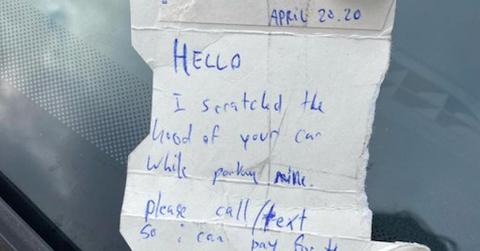 APRIL 20.20
HELLO
I scratched the
hood of your car
while parking mine.
please call/text
so i can pay for th